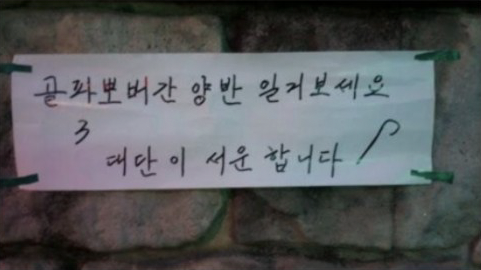 골파뽀버간 양반 일거보세요
3 대단이 서운 합니다